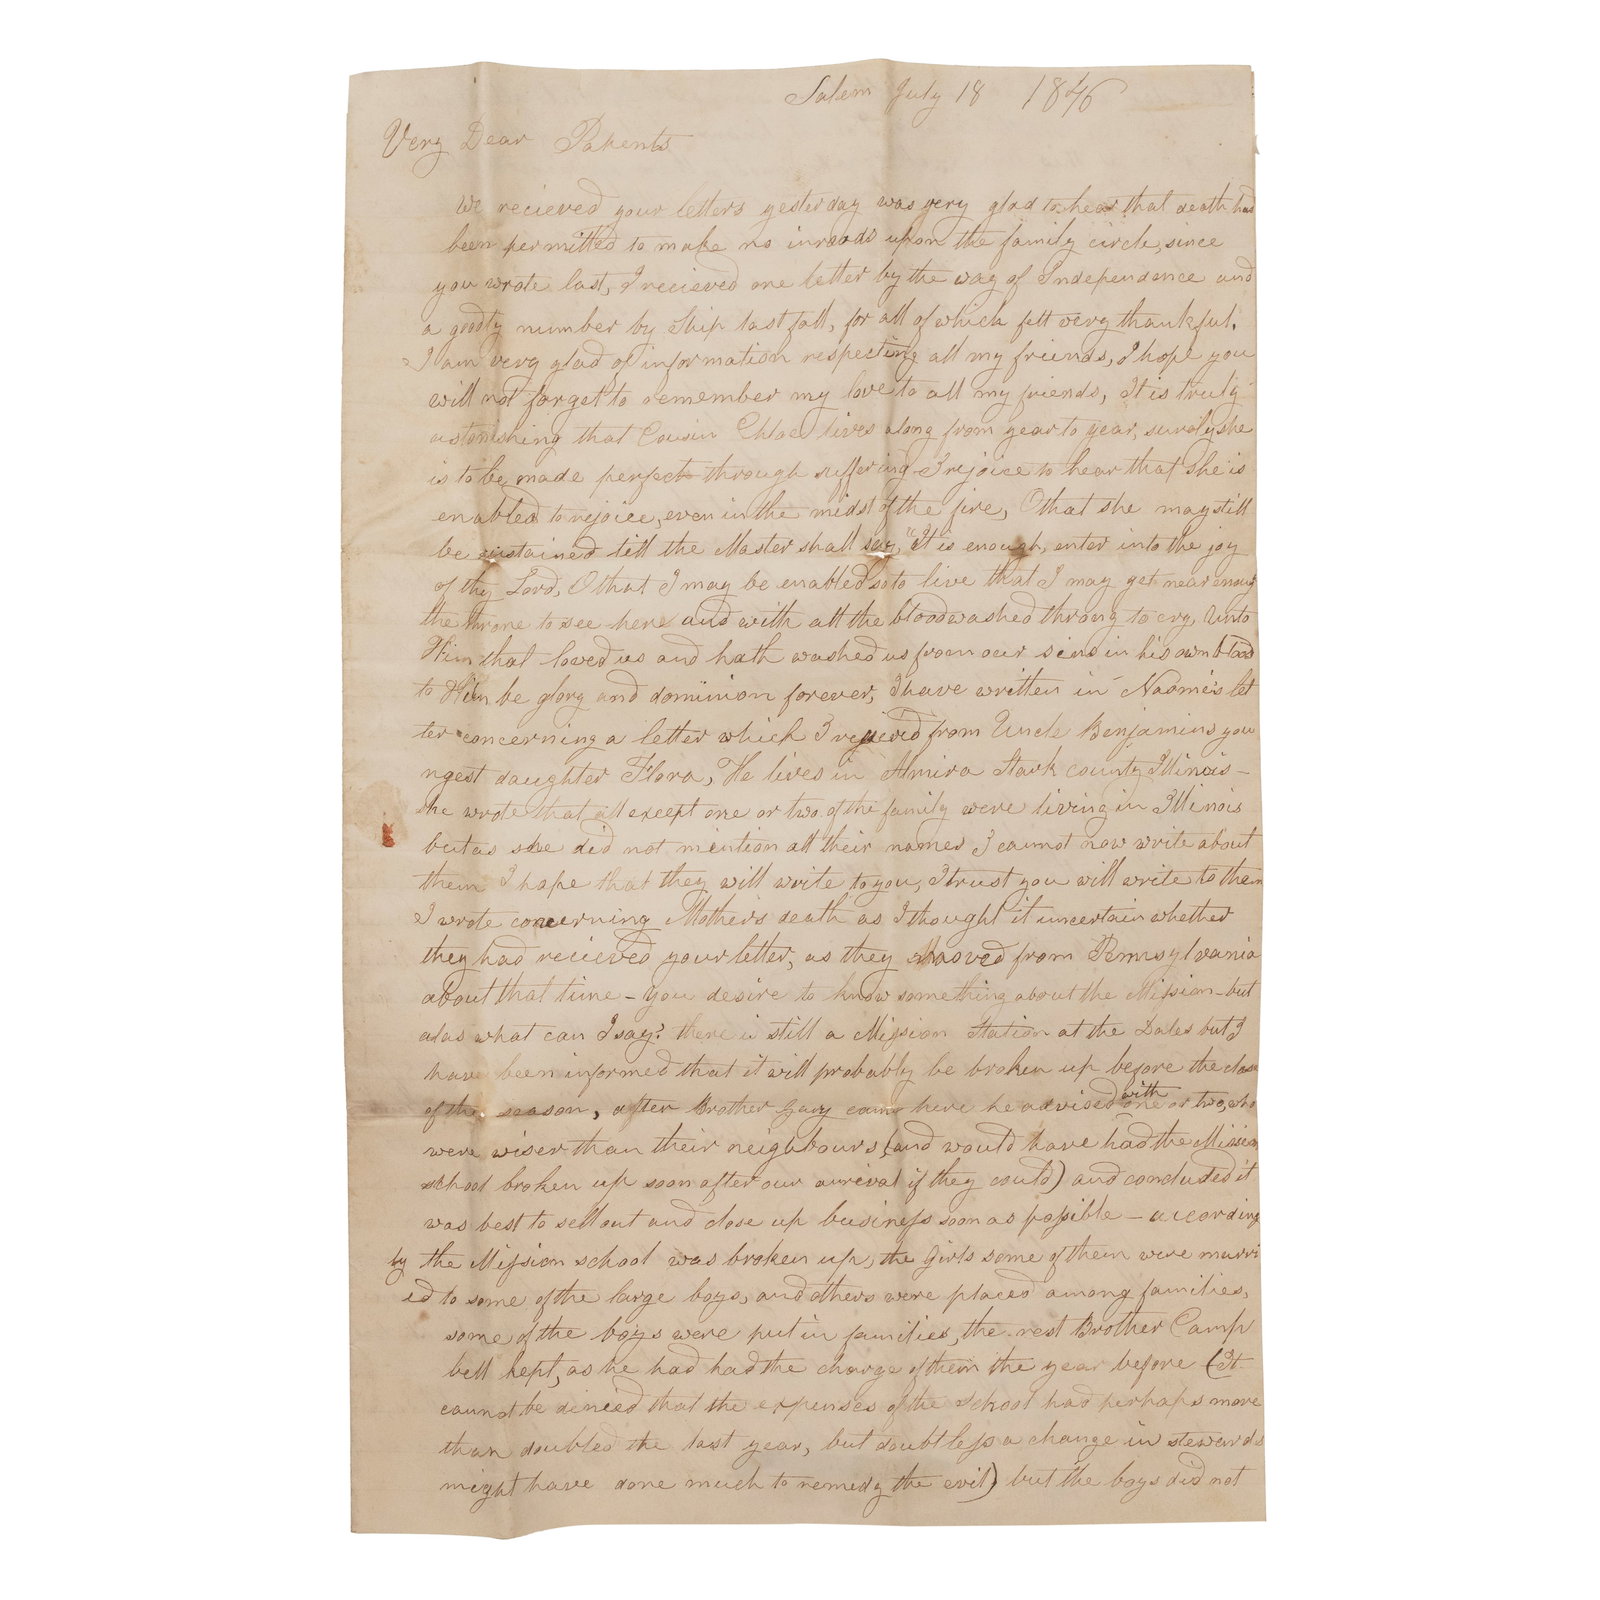 Salem July 18 1846
Very Dear Parents
We recieved your letters yesterday was very glad to hear that death had
been permitted to make no inroads upon the family circle, since
you wrote last, I recieved one letter by the way of Independence and
a goodly number by Ship last fall, for all of which felt very thankful.
I am very glad of information respecting all my friends, I hope you
will not forget to remember my love to all my friends, It is truly
astonishing that Cousin Chloe lives along from year to year, surely she
is to be made perfect through suffering I rejoice to hear that she is
enabled to rejoice, even in the midst of the fire, O that she may still
be sustained till the Master shall say, "It is enough, enter into the joy
of thy Lord, O that I may be enabled so to live that I may get near enough
the throne to see here and with all the bloodwashed throng to cry, Unto
Him that loved us and hath washed us from our sins in his own blood
to Him be glory and dominion forever, I have written in Naomi's let
ter concerning a letter which I recieved from Uncle Benjamins you
ngest daughter Flora, He lives in Almira Stark county Illinois –
she wrote that all except one or two of the family were living in Illinois
but as she did not mention all their names I cannot now write about
them I hope that they will write to you, I trust you will write to them
I wrote concerning Mother's death as I thought it uncertain whether
they had recieved your letter, as they moved from Pennsylvania
about that time – you desire to know something about the Mission – but
alas what can I say? there is still a Mission Station at the Dales but I
have been informed that it will probably be broken up before the close
of the season, after Brother Gary came here he advised with one or two, who
were wiser than their neighbours (and would have had the Mission
school broken up soon after our arrival if they could) and concluded it
was best to sell out and close up business soon as possible – according
ly the Mission school was broken up, the Girls some of them were marri
ed to some of the large boys, and others were placed among families,
some of the boys were put in families, the rest Brother Camp
bell kept, as he had had the charge of them the year before (It
cannot be denied that the expenses of the School had perhaps more
than doubled the last year, but doubtless a change in stewards
might have done much to remedy the evil) but the boys did not